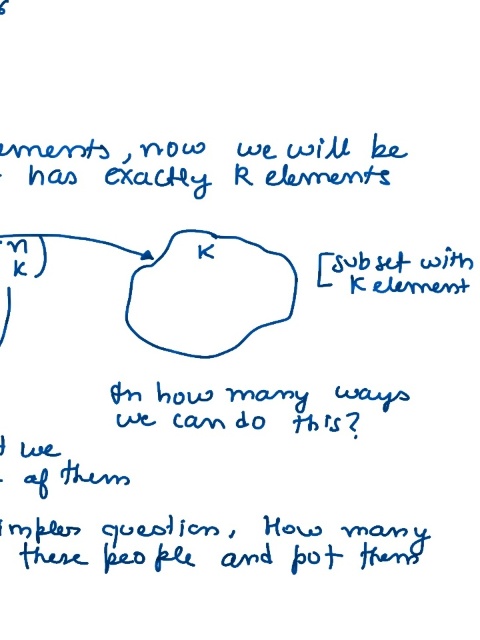 ements, now we will be
has exactly K elements
n
K)
K
[subset with
K element
In how many ways
we can do this?
we
of them
impler question, How many
these people and put them